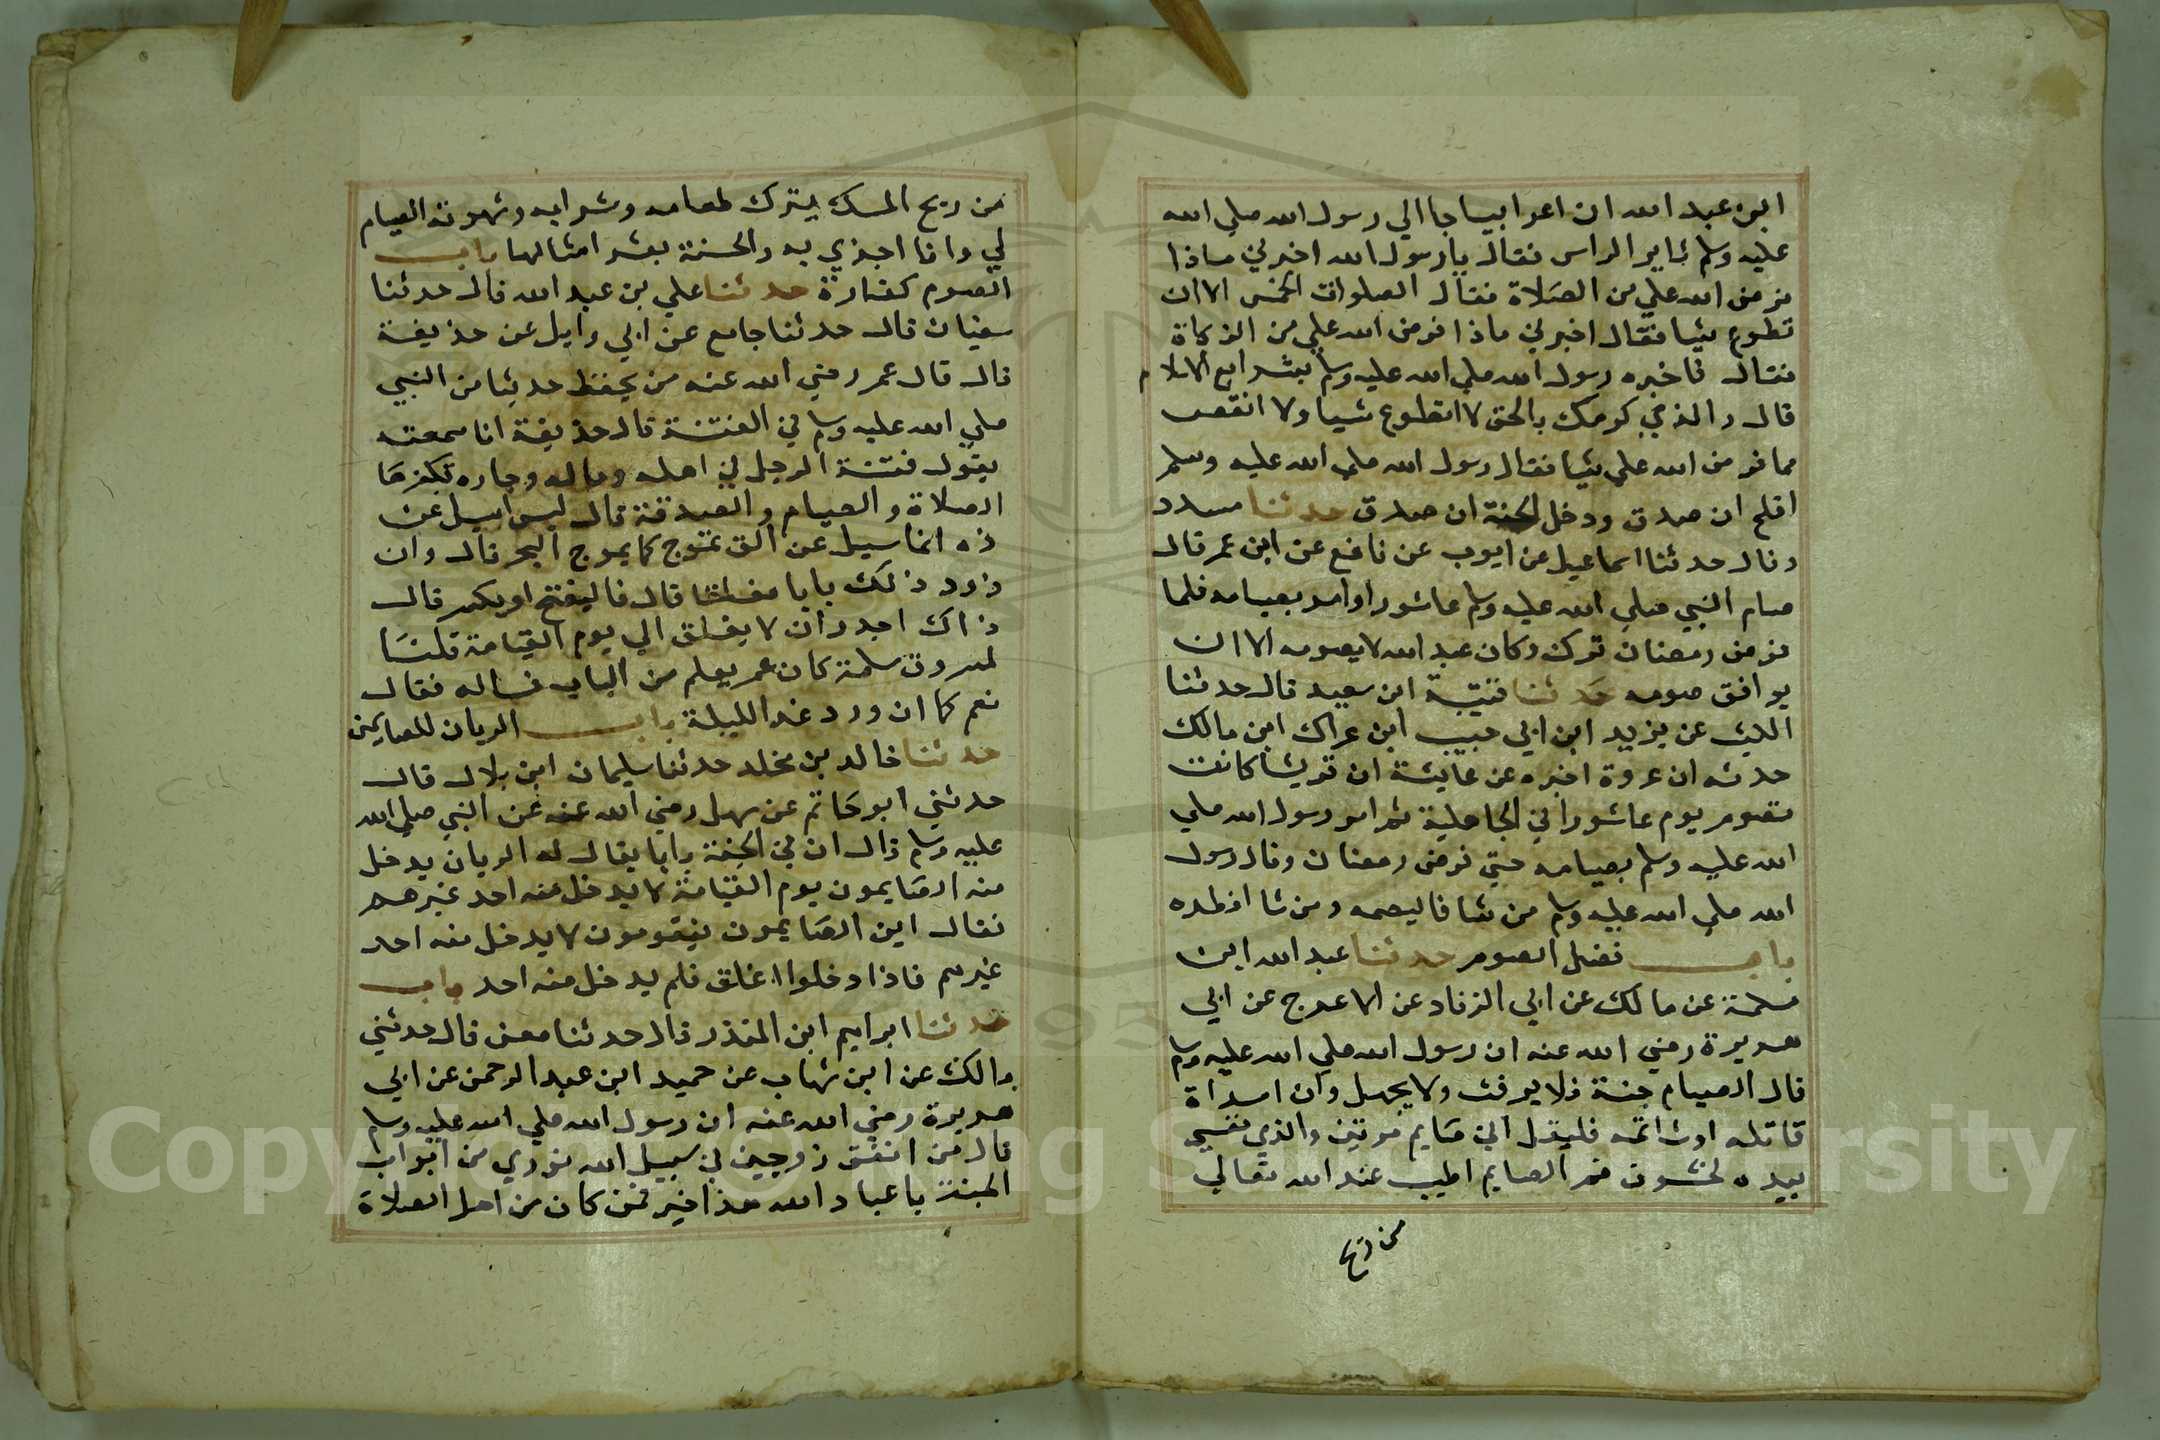 ابن عبد الله ان اعرابيا جا الي رسول الله صلي الله
عليه وسلم ثاير الراس فقال يا رسول الله اخبرني ماذا
فرض الله علي من الصلاة فقال الصلوات الخمس الا ان
تطوع شيا فقال اخبرني ماذا فرض الله علي من الزكاة
فقال فاخبره رسول الله صلي الله عليه وسلم بشرايع الاسلام
قال والذي كرمك بالحق لا اتطوع شيا ولا انقص
مما فرض الله علي شيا فقال رسول الله صلي الله عليه وسلم
افلح ان صدق ودخل الجنة ان صدق حدثنا مسدد
وقال حدثنا اسماعيل عن ايوب عن نافع عن ابن عمر قال
صام النبي صلي الله عليه وسلم عاشورا وامر بصيامه فلما
فرض رمضان ترك وكان عبد الله لا يصومه الا ان
يوافق صومه حدثنا قتيبة ابن سعيد قال حدثنا
الليث عن يزيد ابن ابي حبيب ابن عراك ابن مالك
حدثه ان عروة اخبره عن عايشة ان قريشا كانت
تصوم يوم عاشورا في الجاهلية ثم امر رسول الله صلي
الله عليه وسلم بصيامه حتي فرض رمضان وقال رسول
الله صلي الله عليه وسلم من شا فاليصمه ومن شا افطره
باب فضل الصوم حدثنا عبد الله ابن
مسلمة عن مالك عن ابي الزناد عن الاعرج عن ابي
هريرة رضي الله عنه ان رسول الله صلي الله عليه وسلم
قال الصيام جنة فلا يرفث ولا يجهل وان امراة
قاتله او شاتمه فليقل اني صايم مرتين والذي نفسي
بيده لخلوف فم الصايم اطيب عند الله تعالي
من ريح
من ريح المسك يترك طعامه وشرابه وشهوته الصيام
لي وانا اجزي به والحسنة بعشر امثالها باب
الصوم كفارة حدثنا علي بن عبد الله قال حدثنا
سفيان قال حدثنا جامع عن ابي وايل عن حذيفة
قال قال عمر رضي الله عنه من يحفظ حديثا من النبي
صلي الله عليه وسلم في الفتنة قال حذيفة انا سمعته
يقول فتنة الرجل في اهله وماله وجاره تكفرها
الصلاة والصيام والصدقة قال ليس اسيل عن
ذه انما سيل عن التي تموج كما يموج البحر قال وان
دون ذلك بابا مغلقا قال فاليفتح او يكسر قال
ذاك اجدر ان لا يغلق الي يوم القيامة قلنا
لمسروق سلمة كان عمر يعلم من الباب فساله فقال
نعم كما ان ورد غد الليلة باب الريان للصايمين
حدثنا خالد بن مخلد حدثنا سليمان ابن بلال قال
حدثني ابو حاتم عن سهل رضي الله عنه عن النبي صلي الله
عليه وسلم قال ان في الجنة بابا يقال له الريان يدخل
منه الصايمون يوم القيامة لا يدخل منه احد غيرهم
فقال اين الصايمون فيقومون لا يدخل منه احد
غيرهم فاذا دخلوا اغلق فلم يدخل منه احد باب
حدثنا ابراهيم ابن المنذر قال حدثنا معن قال حدثني
مالك عن ابن شهاب عن حميد ابن عبد الرحمن عن ابي
هريرة رضي الله عنه ان رسول الله صلي الله عليه وسلم
قال من انفق زوجين في سبيل الله نودي من ابواب
الجنة يا عباد الله هذا خير فمن كان من اهل الصلاة